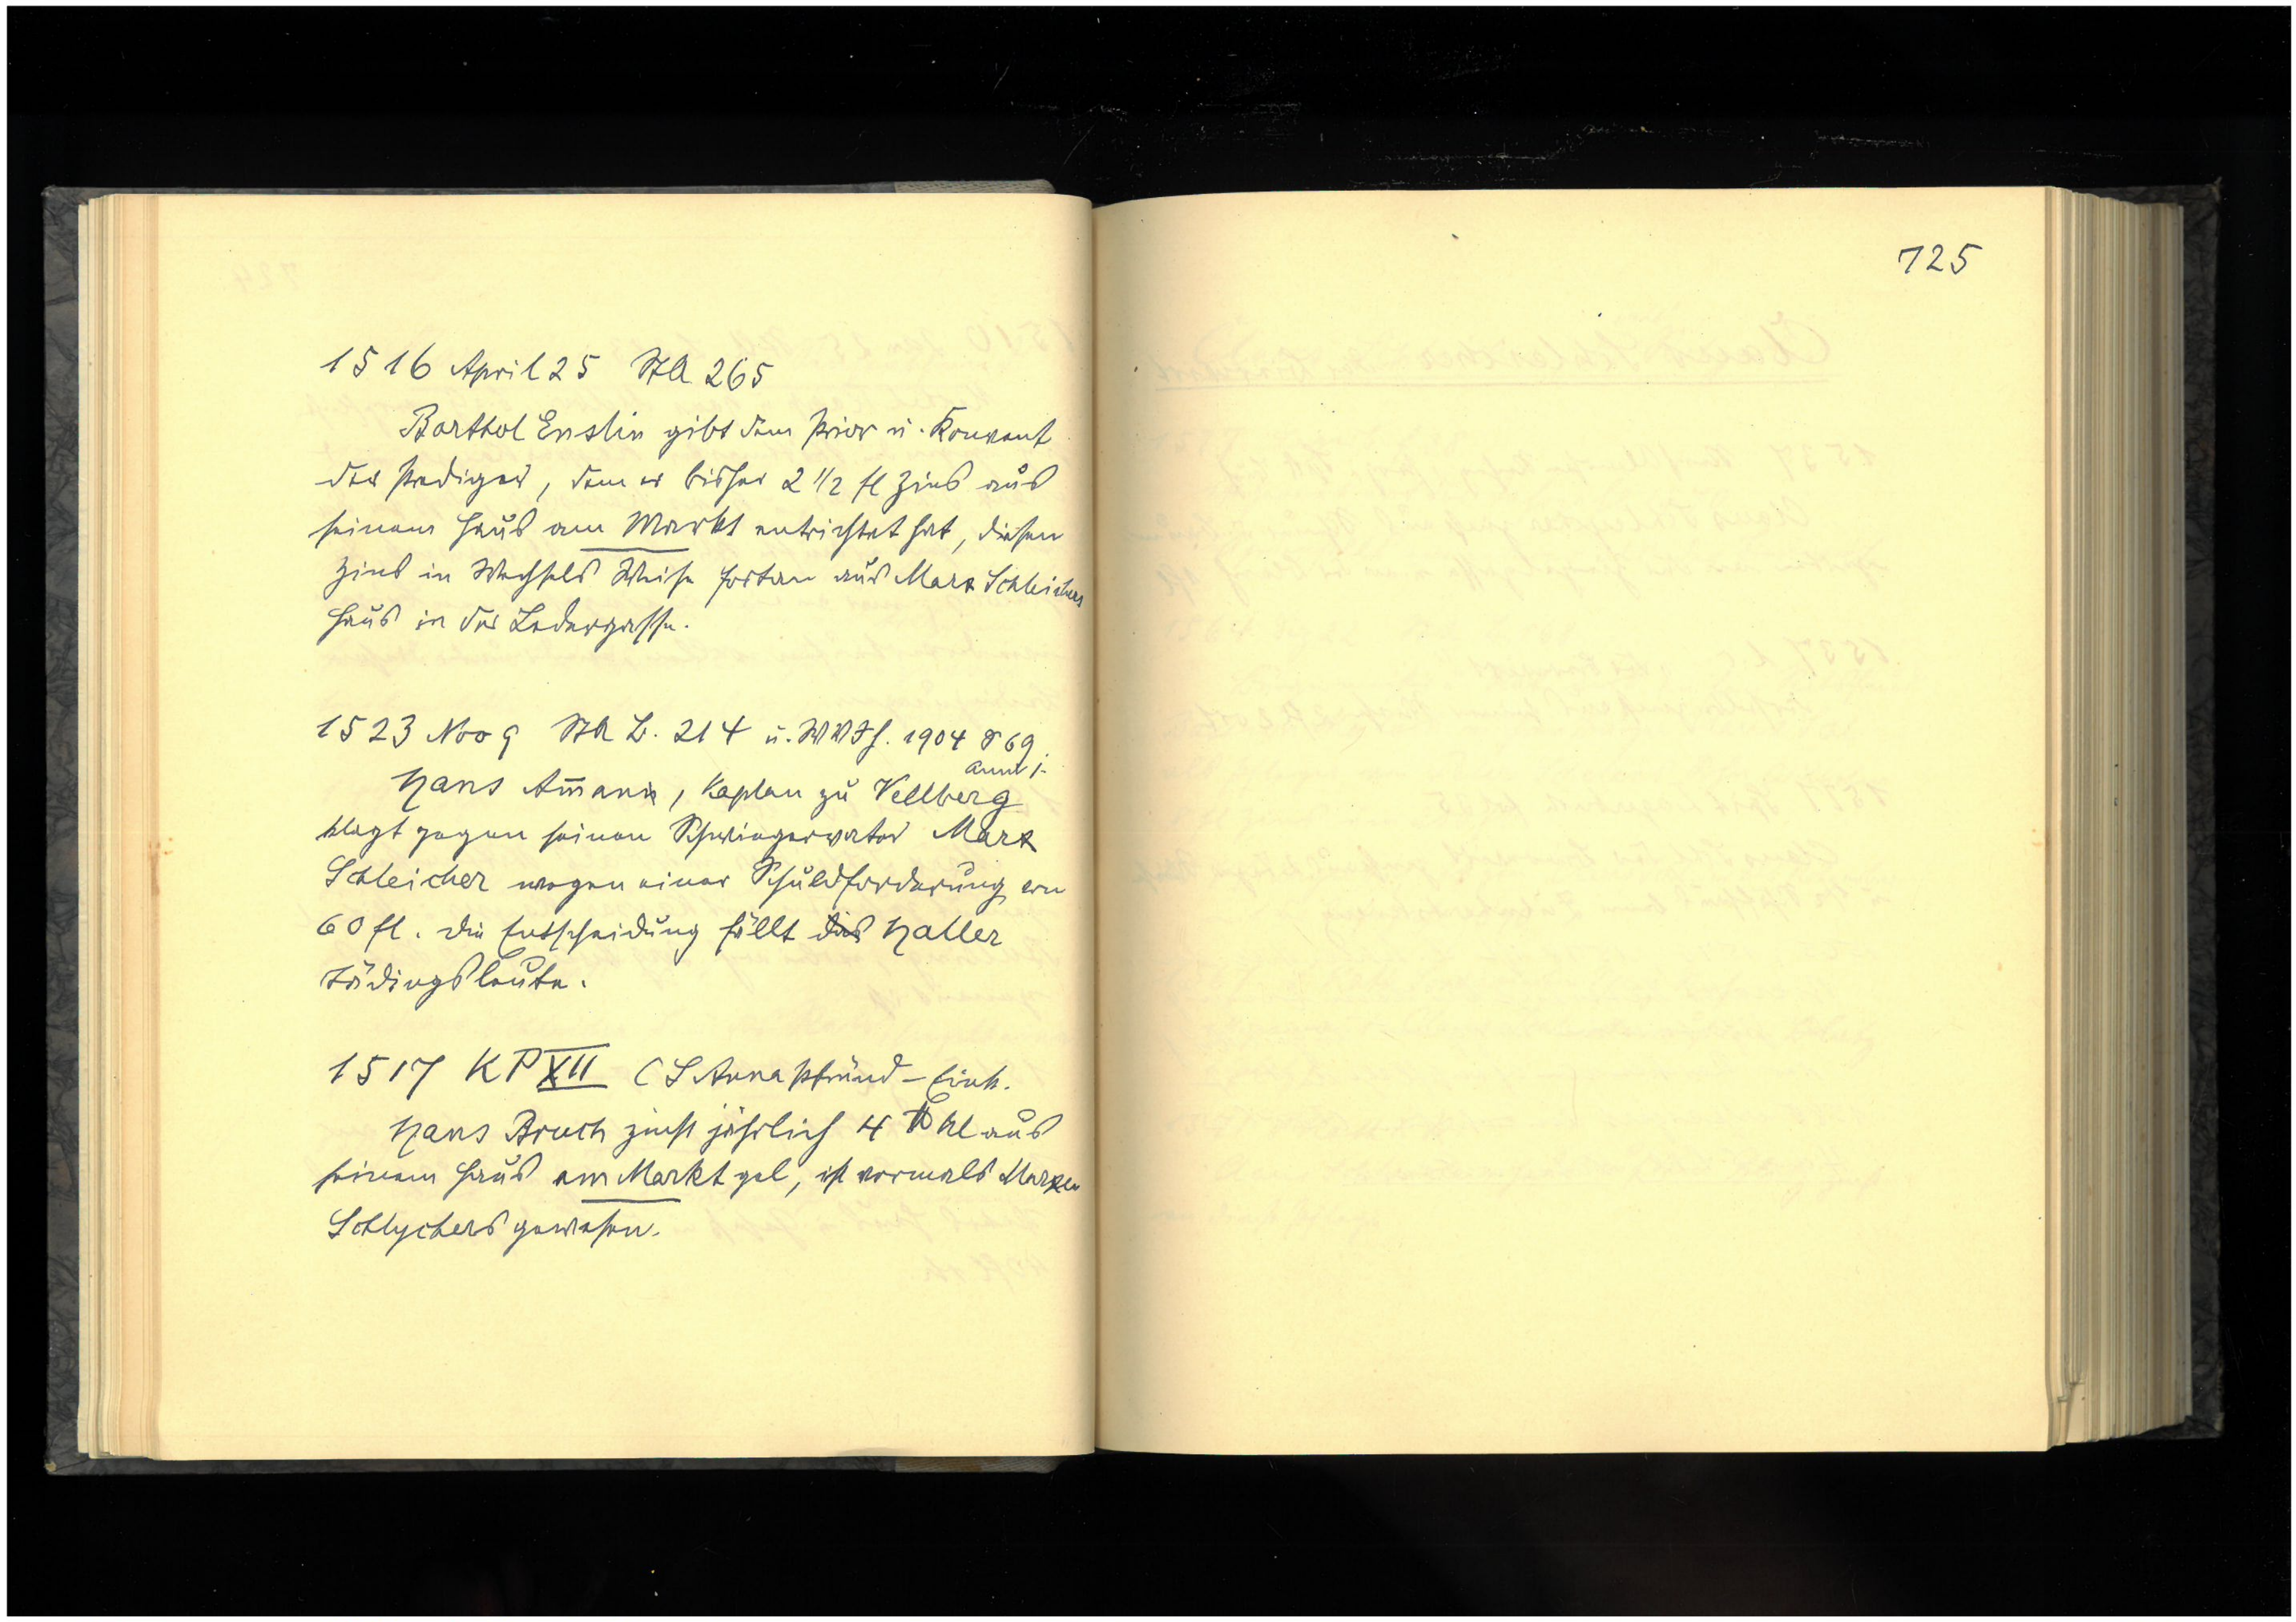 1516 April 25 StA 265
Barthol Enslin gibt dem Prior u. Konvent
der Prediger, dem er bisher 2 1/2 fl Zins aus
seinem Haus am Markt entrichtet hat, diesen
Zins in Wechsels Weise fortan aus Marx Schleichers
Haus in der Ledergasse.
1523 Nov 9 StA L. 214 u. WVJH. 1904 S 69
Anm 1.
Hans Am̄ann, Kaplan zu Vellberg
klagt gegen seinen Schwiegervater Marx
Schleicher wegen einer Schuldforderung von
60 fl. Die Entscheidung fällt die Haller
Tädingsleute.
1517 KP XII (S Anna Pfründ-Eink.
Hans Bruch zinst jährlich 4 ℔ hl aus
seinem Haus am Markt gel, ist vormals Marxen
Schlychers gewesen.
125